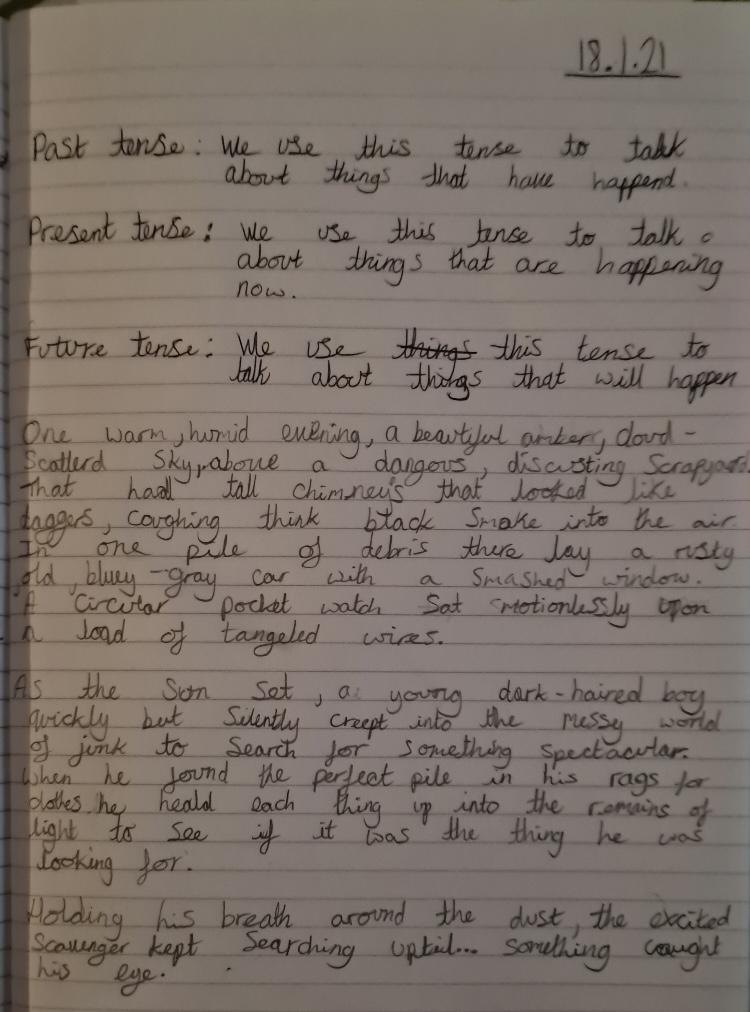 18.1.21
Past tense: We use this tense to talk
about things that have happend.
Present tense: We use this tense to talk
about things that are happening
now.
Future tense: We use things this tense to
talk about things that will happen
One warm, humid evening, a beautiful amber, cloud-
Scatterd Sky, above a dangous, discusting Scrapyard.
that had tall chimney's that looked like
daggers, coughing think black Smoke into the air.
In one pile of debris there lay a rusty
old, bluey-gray car with a Smashed window.
A circular pocket watch Sat motionlessly upon
a load of tangeled wires.
As the Sun Set, a young dark-haired boy
quickly but Silently creept into the messy world
of junk to Search for Something Spectacular.
When he found the perfect pile in his rags for
clothes he heald each thing up into the remains of
light to See if it was the thing he was
looking for.
Holding his breath around the dust, the excited
Scavenger kept Searching uptil... Something caught
his eye.